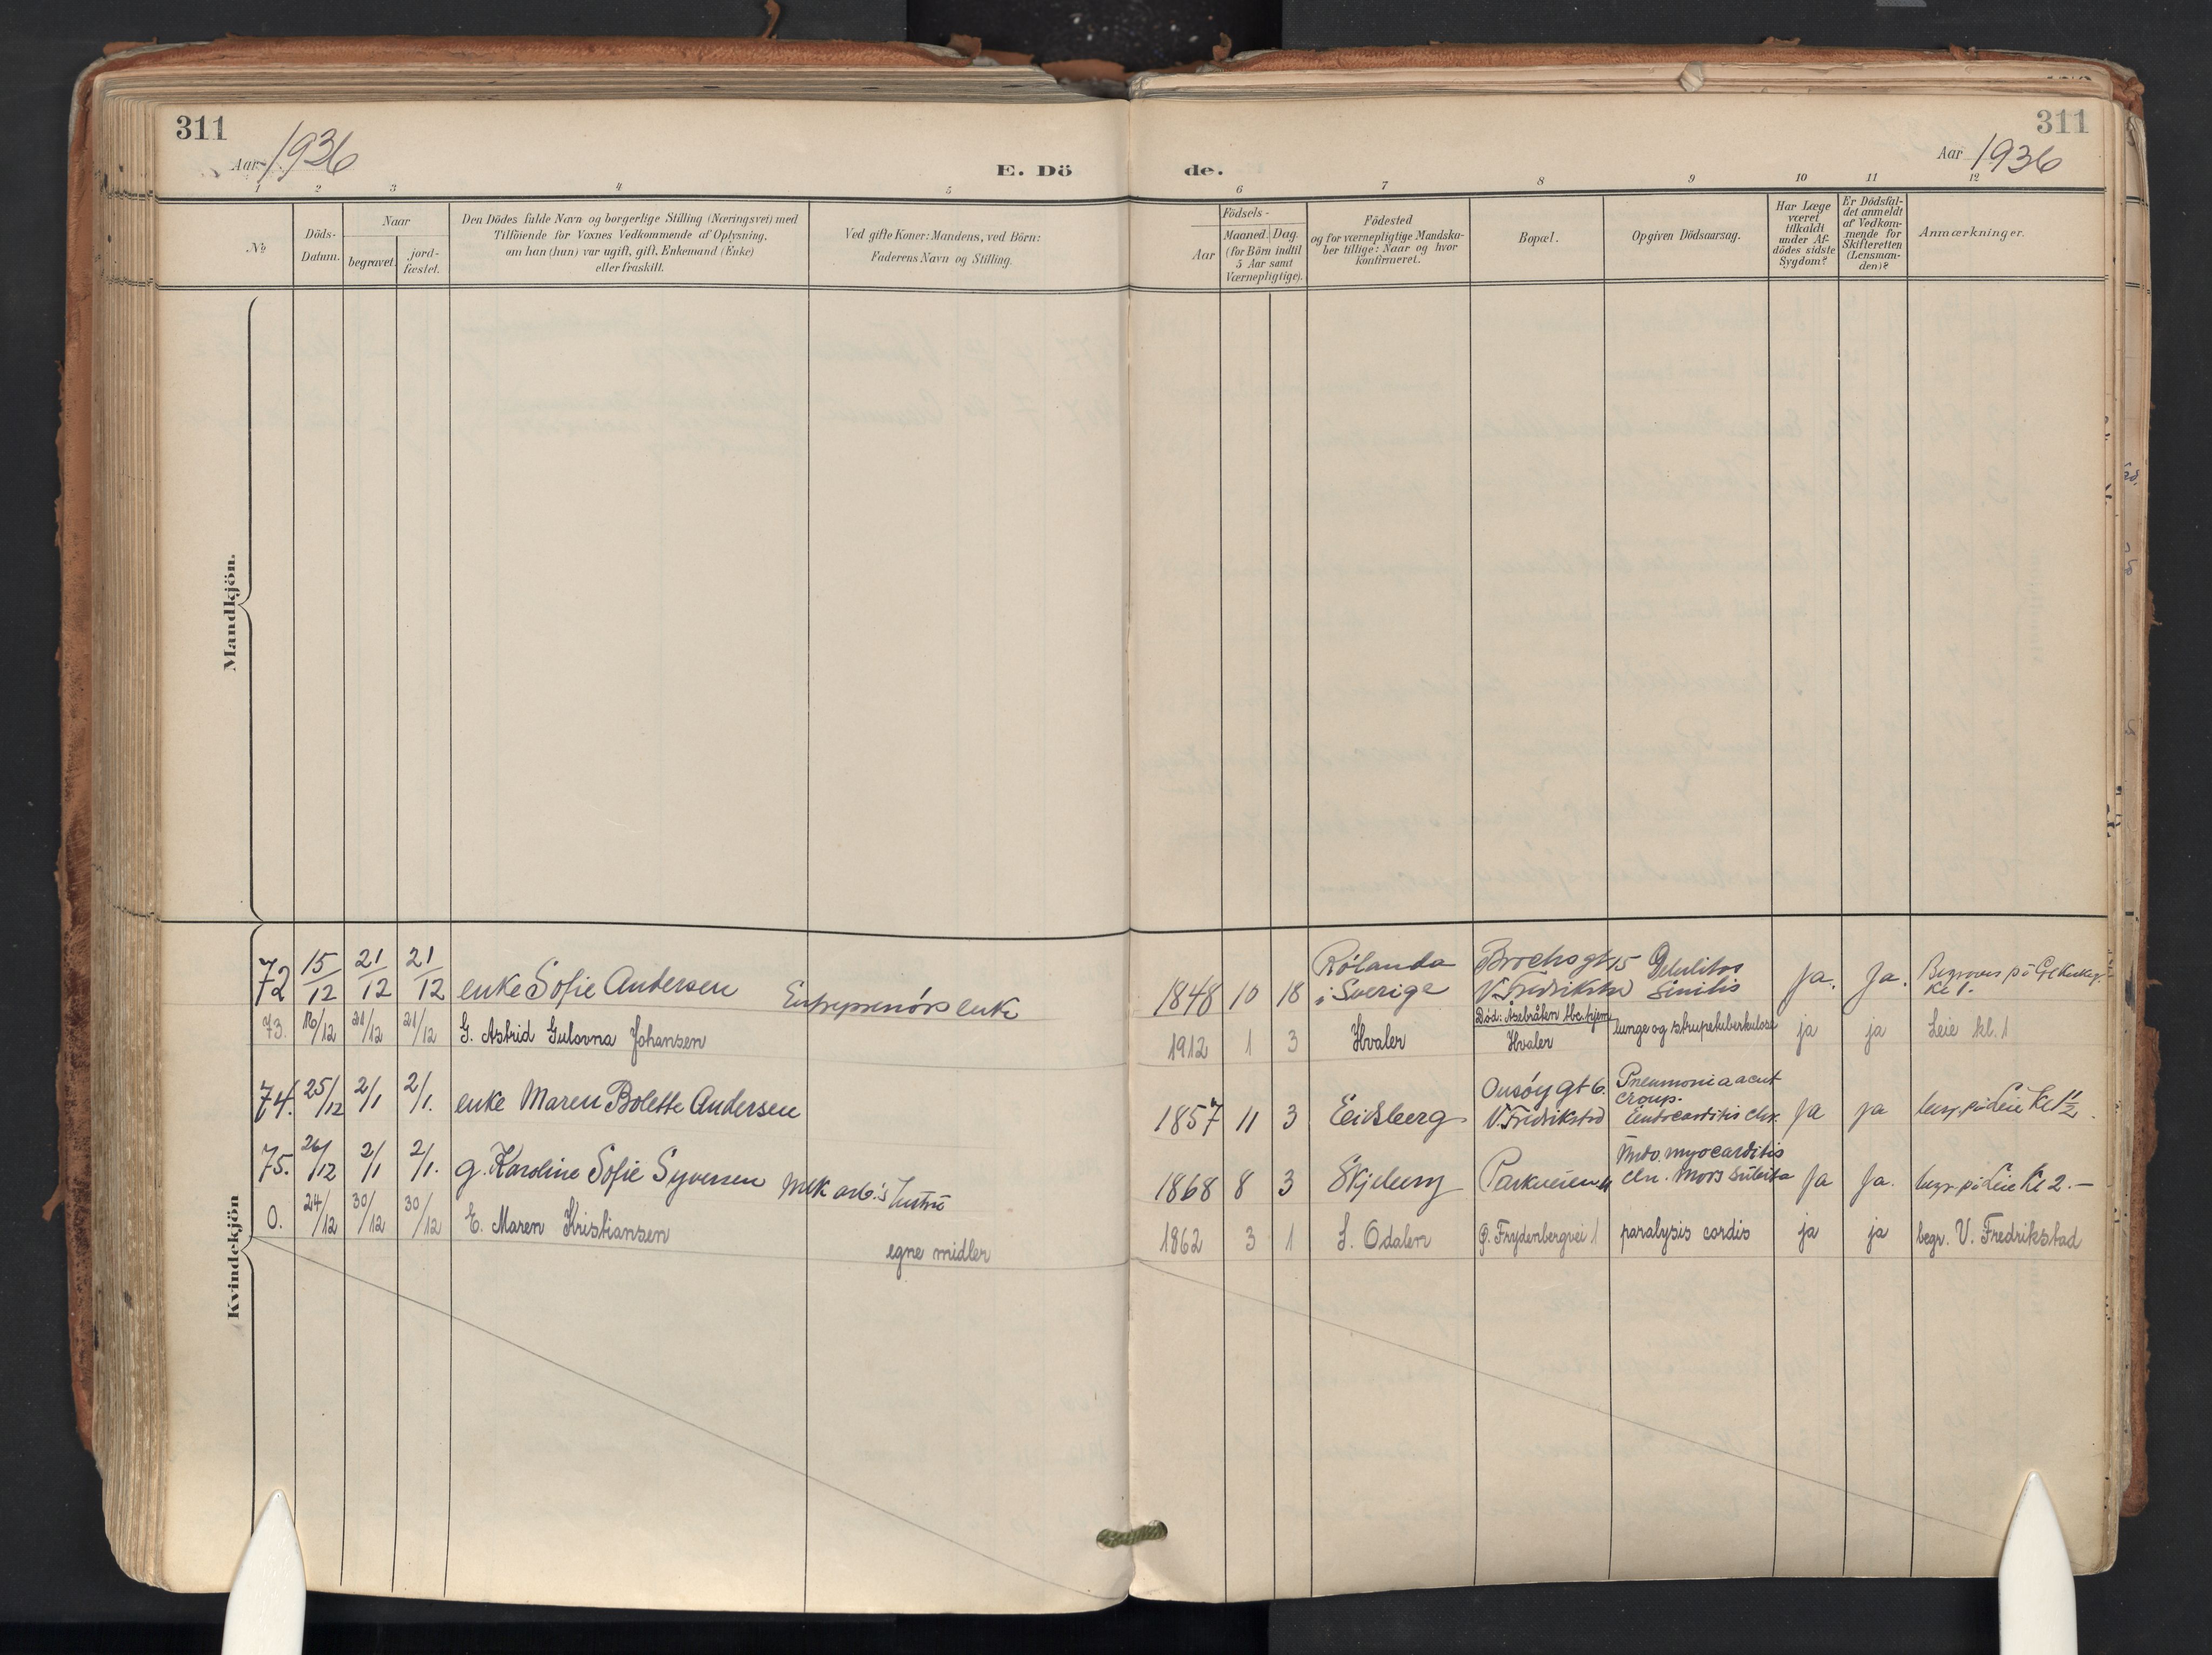 311
Aar 1936
E. Dö
de.
311
Aar 1936
1 2 3 4 5 6 7 8 9 10 11 12
No
Döds-
Datum.
Naar
begravet.
jord-
fæstet.
Den Dödes fulde Navn og borgerlige Stilling (Næringsvei) med
Tilföiende for Voxnes Vedkommende af Oplysning,
om han (hun) var ugift, gift, Enkemand (Enke)
eller fraskilt.
Ved gifte Koner: Mandens, ved Börn:
Faderens Navn og Stilling.
Födsels-
Aar
Maaned. Dag.
(for Börn indtil
5 Aar samt
Værnepligtige).
Födested
og for værnepligtige Mandska-
ber tillige: Naar og hvor
konfirmeret.
Bopæl.
Opgiven Dödsaarsag.
Har Læge
været
tilkaldt
under Af-
dödes sidste
Sygdom?
Er Dödsfal-
det anmeldt
af Vedkom-
mende for
Skifteretten
(Lensman-
den)?
Anmærkninger.
Mandkjön.
Kvindekjön
72 15/12 21/12 21/12 enke Sofie Andersen Entreprenørs enke 1848 10 18 Rölanda
i Sverige
Brochsgt 15
V. Fredrikstad
Debilitas
Senilis
Ja. Ja.
Begraves på Gl Kirkeg.
Kl 1.
73. 16/12 21/12 21/12 G. Astrid Gulovna Johansen 1912 1 3 Hvaler
Död: Åsebråten tbc. hjem
Hvaler
lunge og strupetuberkulose ja ja Leie kl. 1
74. 25/12 2/1 2/1. enke Maren Bolette Andersen 1857 11 3 Eidsberg
Onsöy gt 6.
V. Fredrikstad
Pneumonia acut
croup.
Endocarditis chr. Ja ja begr. på Leie Kl 1½.
75. 26/12 2/1 2/1. g. Karoline Sofie Syversen mek arb.'s hustru 1868 8 3 Skjeberg
Parkveien 4
Endo. myocarditis
chr. Mors subita Ja Ja. begr. på Leie Kl 2.-
0. 24/12 30/12 30/12 E. Maren Kristiansen
egne midler
1862 3 1 S. Odalen G. Frydenbergvei 1 paralysis cordis ja ja begr. V. Fredrikstad